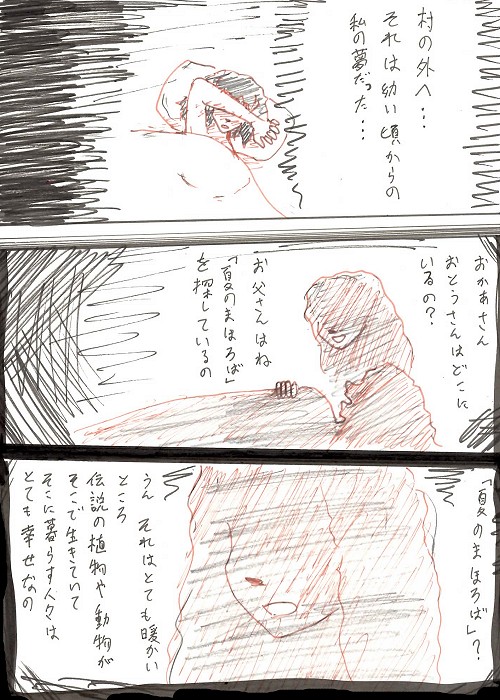 村の外へ…
それは幼い頃からの
私の夢だった…
おかあさん
おとうさんはどこに
いるの？
お父さんはね
「夏のまほろば」
を探しているの
「夏のまほろば」？
うん それはとても暖かい
ところ
伝説の植物や動物が
そこで生きていて
そこに暮らす人々は
とても幸せなの